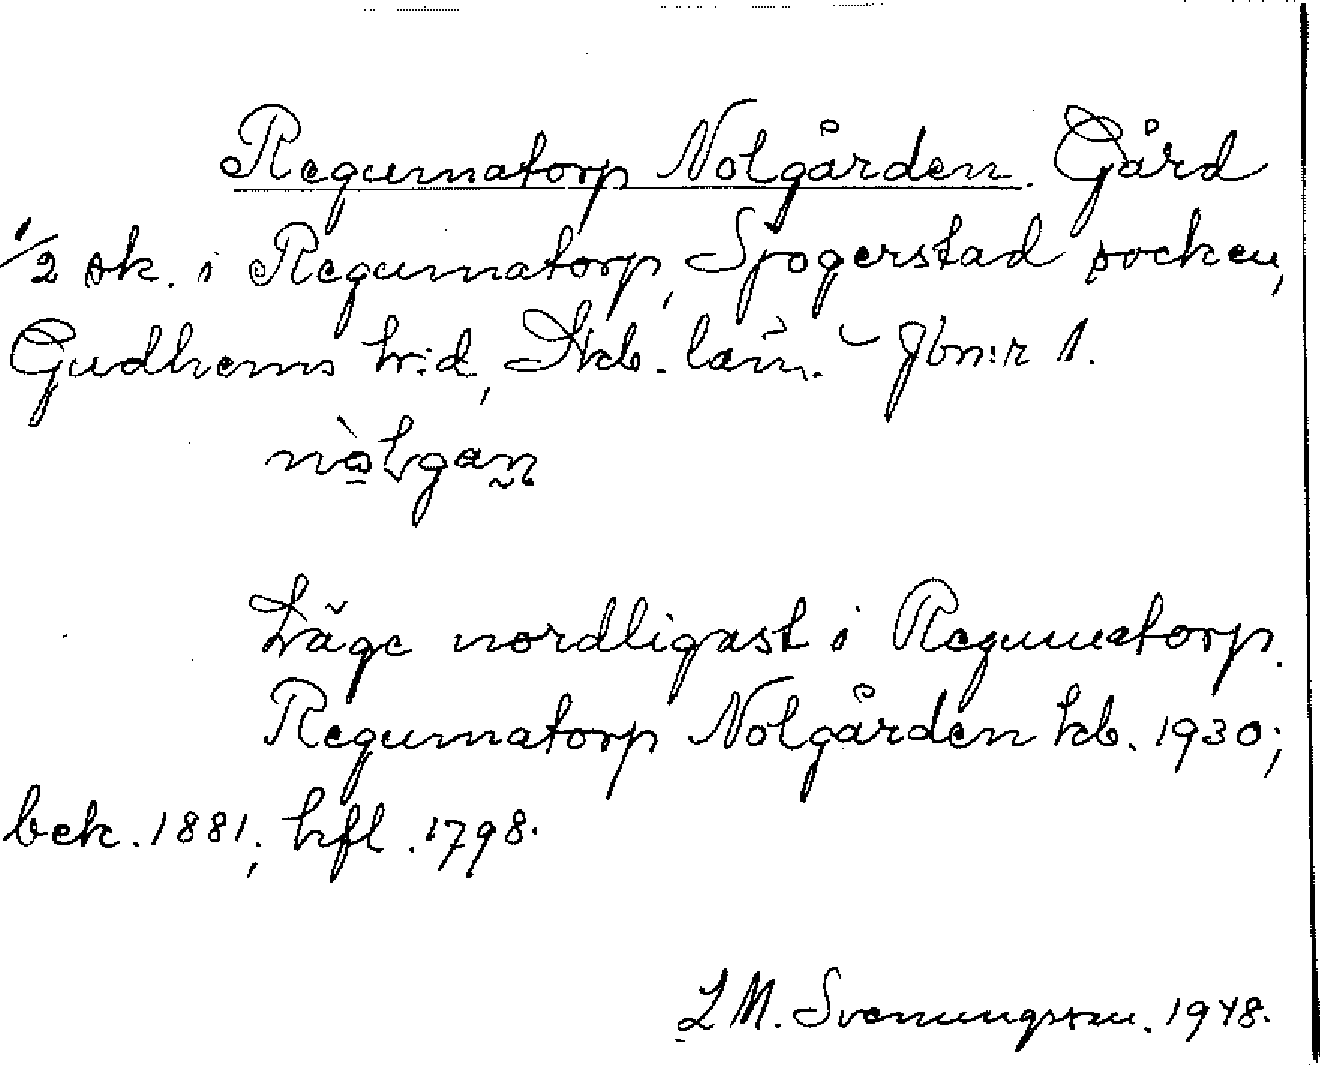 Regumatorp Nolgården. Gård
1/2 sk. i Regumatorp, Sjogerstad socken,
Gudhems h:d, Skb. län. - Jbn:r 1.
Läge nordligast i Regumatorp.
Regumatorp Nolgården kb. 1930;
bek. 1881; hfl. 1798.
L M. Svenungsson. 1948.